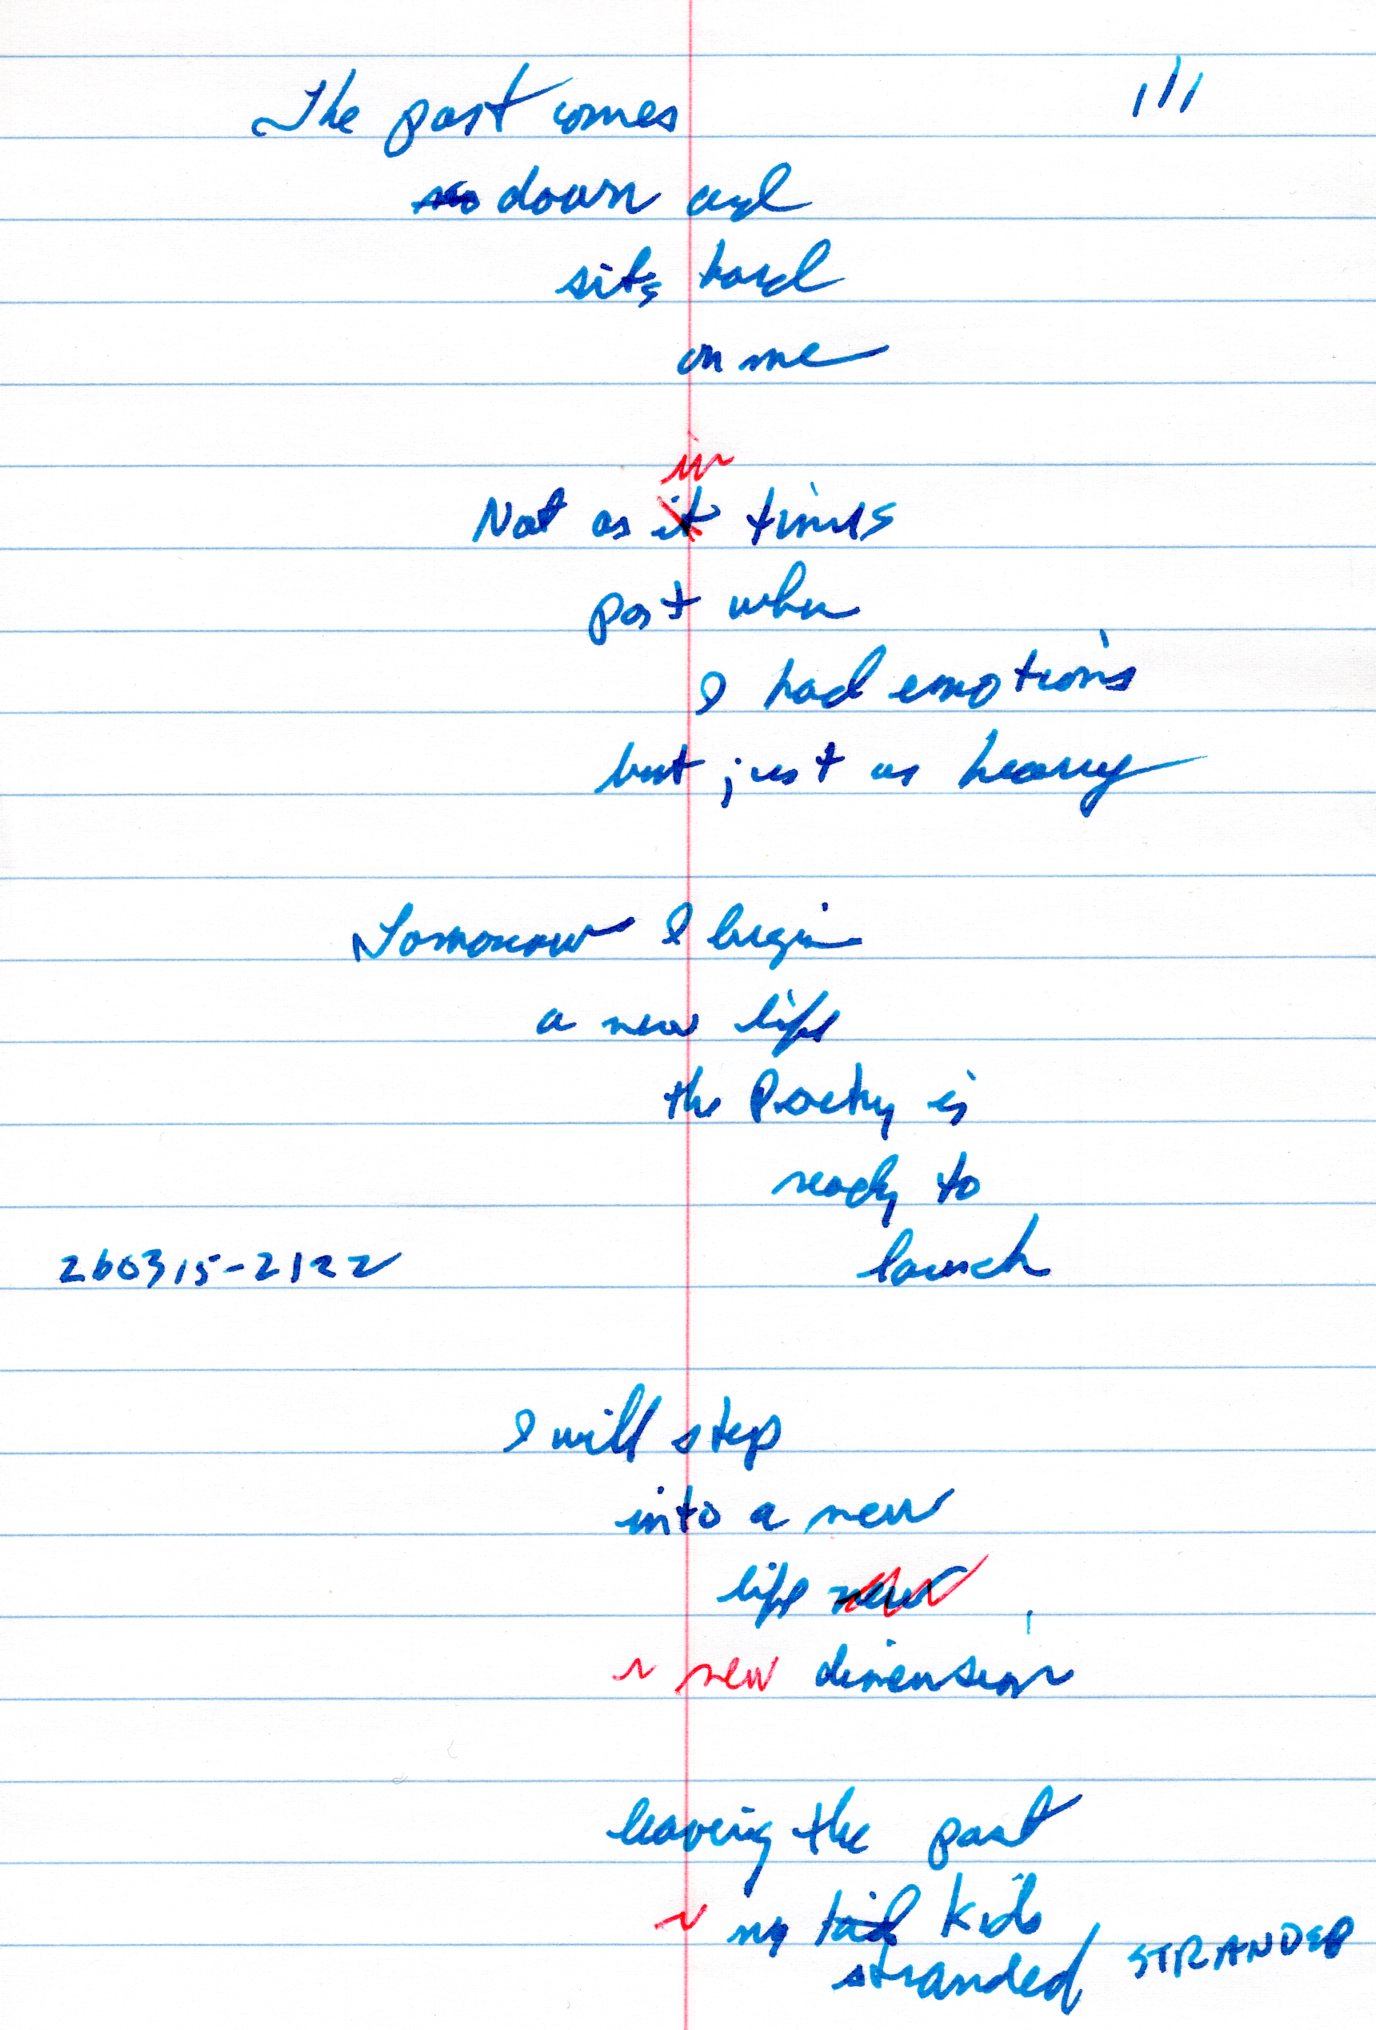 The past comes
111
down and
sits hard
on me
in
Not as it times
past when
I had emotions
but just as heavy
Tomorrow I begin
a new life
the Poetry is
ready to
260315-2122
launch
I will step
into a new
life new
~ new dimension
leaving the past
~ my kids
stranded STRANDED